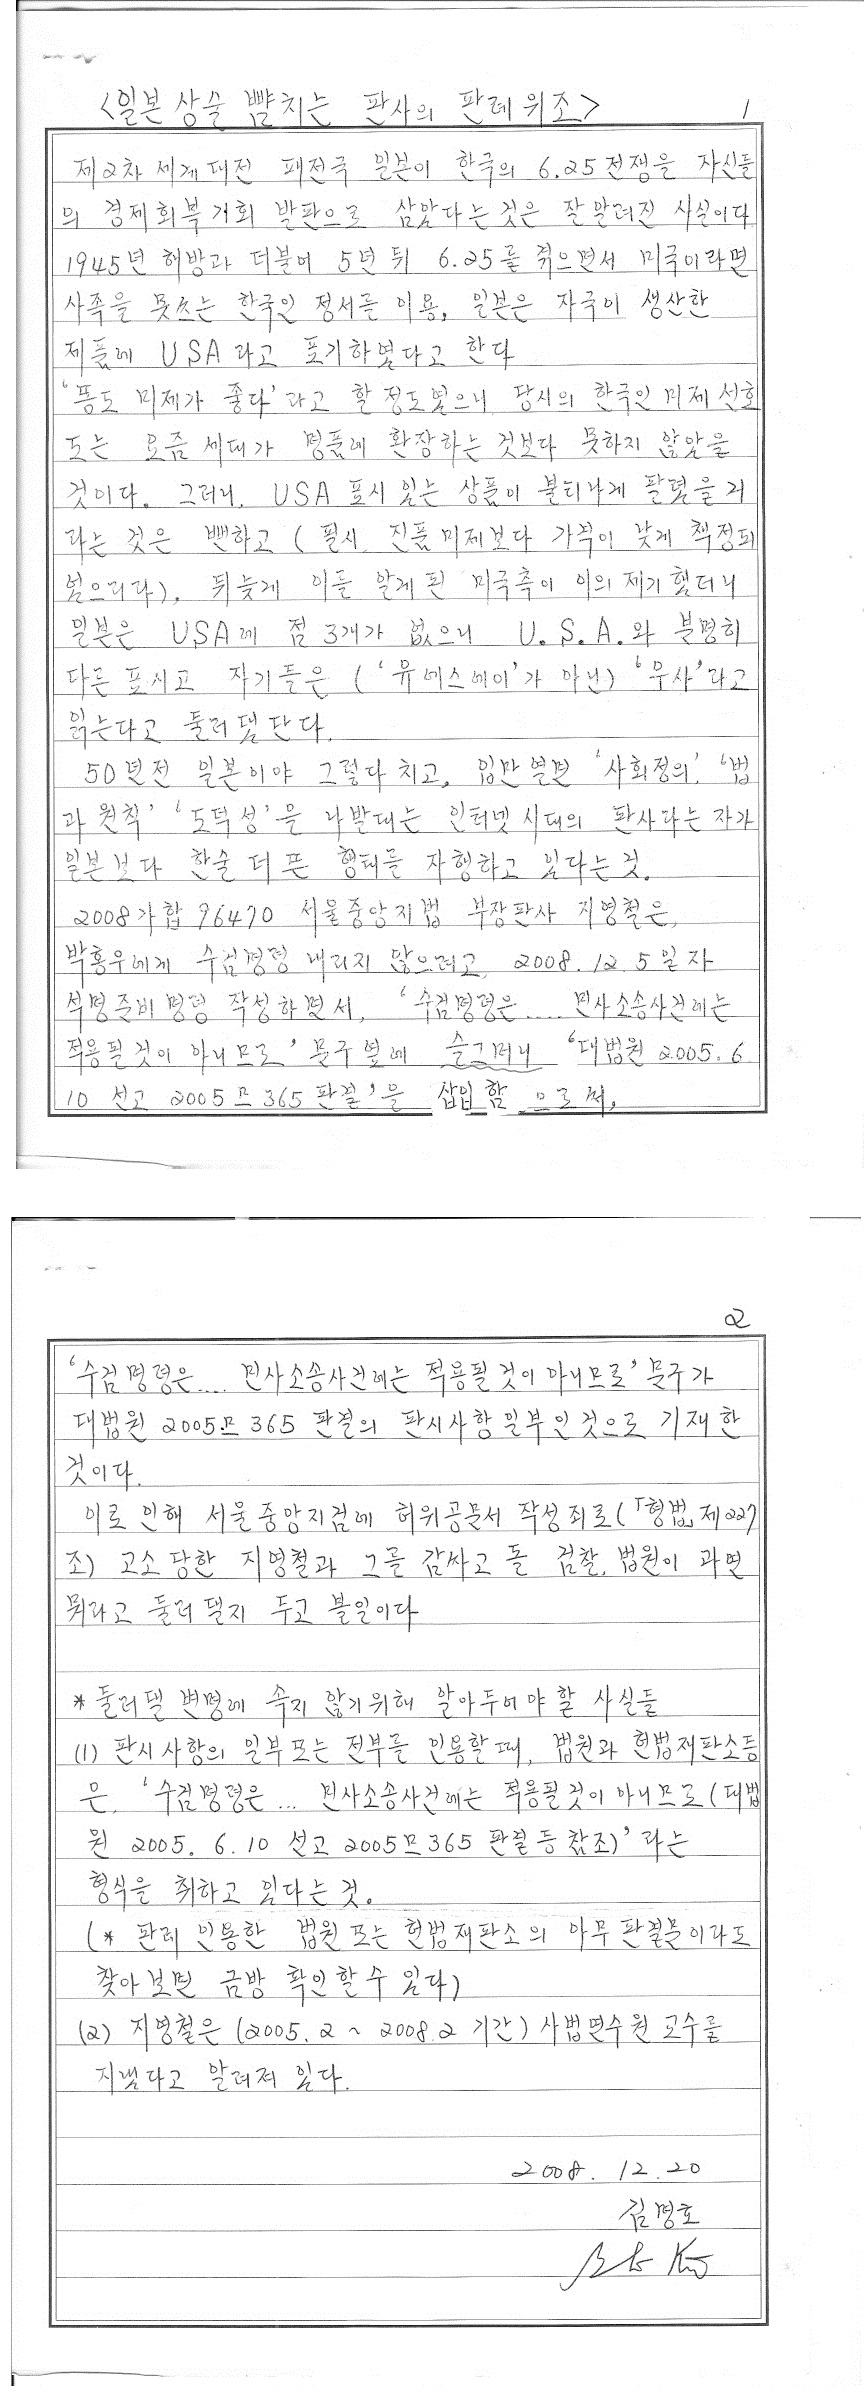 <일본상술 뺨치는 판사의 판례위조> 1
제2차 세계대전 패전국 일본이 한국의 6.25전쟁을 자신들
의 경제회복 기회 발판으로 삼았다는 것은 잘 알려진 사실이다
1945년 해방과 더불어 5년 뒤 6.25를 겪으면서 미국이라면
사족을 못쓰는 한국인 정서를 이용, 일본은 자국이 생산한
제품에 USA라고 표기하였다고 한다
'똥도 미제가 좋다'라고 할 정도였으니 당시의 한국인 미제 선호
도는 요즘 세대가 명품에 환장하는 것보다 못하지 않았을
것이다. 그러니, USA 표시 있는 상품이 불티나게 팔렸을 거
라는 것은 뻔하고 (필시, 진품 미제보다 가격이 낮게 책정되
었으리라), 뒤늦게 이를 알게 된 미국측이 이의 제기했더니
일본은 USA에 점 3개가 없으니 U.S.A.와 분명히
다른 표시고 자기들은 ('유에스에이'가 아닌) '우사'라고
읽는다고 둘러댔단다.
50년전 일본이야 그렇다 치고, 입만 열면 '사회정의', '법
과 원칙' '도덕성'을 나발대는 인터넷 시대의 판사라는 자가
일본보다 한술 더 뜬 형태를 자행하고 있다는 것.
2008가합76470 서울중앙지법 부장판사 지영철은,
박홍우에게 수검명령 내리지 않으려고, 2008.12.5일자
석명준비명령 작성하면서, '수검명령은..... 민사소송사건에는
적용될 것이 아니므로' 문구 옆에 슬그머니 '대법원 2005.6
10 선고 2005모365 판결'을 삽입함으로써,
2
'수검명령은.... 민사소송사건에는 적용될 것이 아니므로' 문구가
대법원 2005모365 판결의 판시사항 일부인 것으로 기재한
것이다.
이로 인해 서울중앙지검에 허위공문서 작성죄로(「형법」제227
조) 고소 당한 지영철과 그를 감싸고 돌 검찰, 법원이 과연
뭐라고 둘러댈지 두고 볼일이다
* 둘러댈 변명에 속지 않기 위해 알아두어야 할 사실들
(1) 판시사항의 일부 또는 전부를 인용할 때, 법원과 헌법재판소등
은, '수검명령은... 민사소송사건에는 적용될 것이 아니므로(대법
원 2005. 6.10 선고 2005모365 판결 등 참조)'라는
형식을 취하고 있다는 것.
(* 판례 인용한 법원 또는 헌법재판소의 아무 판결문이라도
찾아보면 금방 확인할 수 있다)
(2) 지영철은 (2005.2 ~ 2008.2 기간) 사법연수원 교수를
지냈다고 알려져 있다.
2008. 12.20
김명호